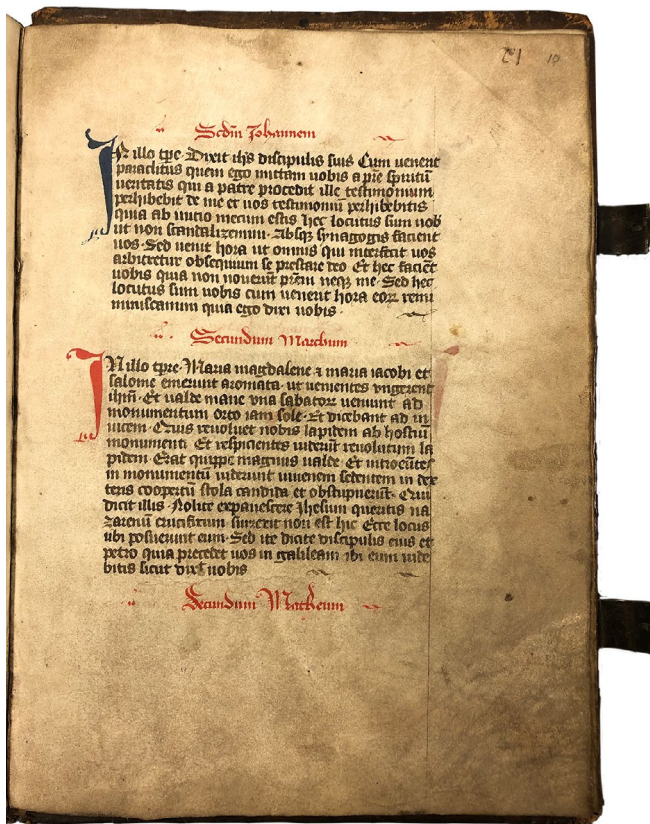 21 10
Scdm Johannem
In illo tpe Dixit ihs discipulis suis Cum uenerit
paraclitus quem ego mittam uobis a pre spiritū
ueritatis qui a patre procedit ille testimonium
perhibebit de me et uos testimoniū perhibebitis
quia ab inicio mecum estis hec locutus sum uob
ut non scandalizemini · Absqꝫ synagogis facient
uos · Sed uenit hora ut omnis qui interficit uos
arbitretur obsequium se prestare deo Et hec faciēt
uobis quia non nouerūt prēm neqꝫ me · Sed hec
locutus sum uobis cum uenerit hora eoꝝ remi
miniscamini quia ego dixi uobis ·
Secundum Marchum
IN illo tpre · Maria magdalene ⁊ maria iacobi et
salome emerunt aromata · ut uenientes vngerent
ihm̄ · Et ualde mane vna sabatoꝝ ueniunt ad
monumentum orto iam sole · Et dicebant ad in
uicem · Quis reuoluet nobis lapidem ab hostiū
monumenti Et respicientes uiderūt reuolutum la
pidem · Erat quippe magnus ualde · Et introeūtes
in monumentū uiderunt iuuenem sedentem in dex
teris coopertū stola candida et obstupuerūt · Qui
dicit illis · Nolite expauescere Jhesum queritis na
zarenū crucifixum surrexit non est hic Ecce locus
ubi posuerunt eum · Sed ite dicite discipulis eius et
petro quia precedet uos in galileam ibi eum uide
bitis sicut dixit uobis
Secundum Matheum